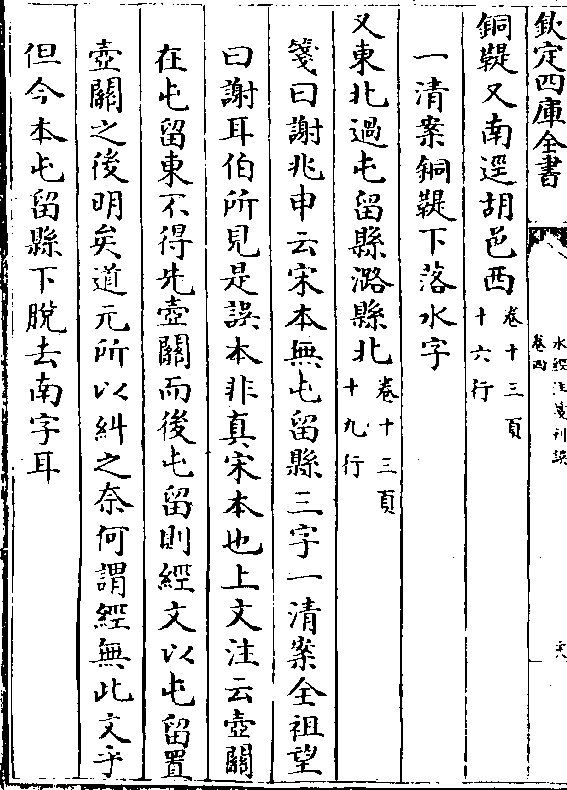 欽定四庫全書
水經注箋刊誤
卷四
銅鞮又南逕胡邑西卷十三頁
十六行
一清案銅鞮下落水字
又東北過屯留縣潞縣北卷十三頁
十九行
箋曰謝兆申云宋本無屯留縣三字一清案全祖望
曰謝耳伯所見是誤本非真宋本也上文注云壺關
在屯留東不得先壺關而後屯留則經文以屯留置
壺關之後明矣道元所以糾之奈何謂經無此文乎
但今本屯留縣下脫去南字耳